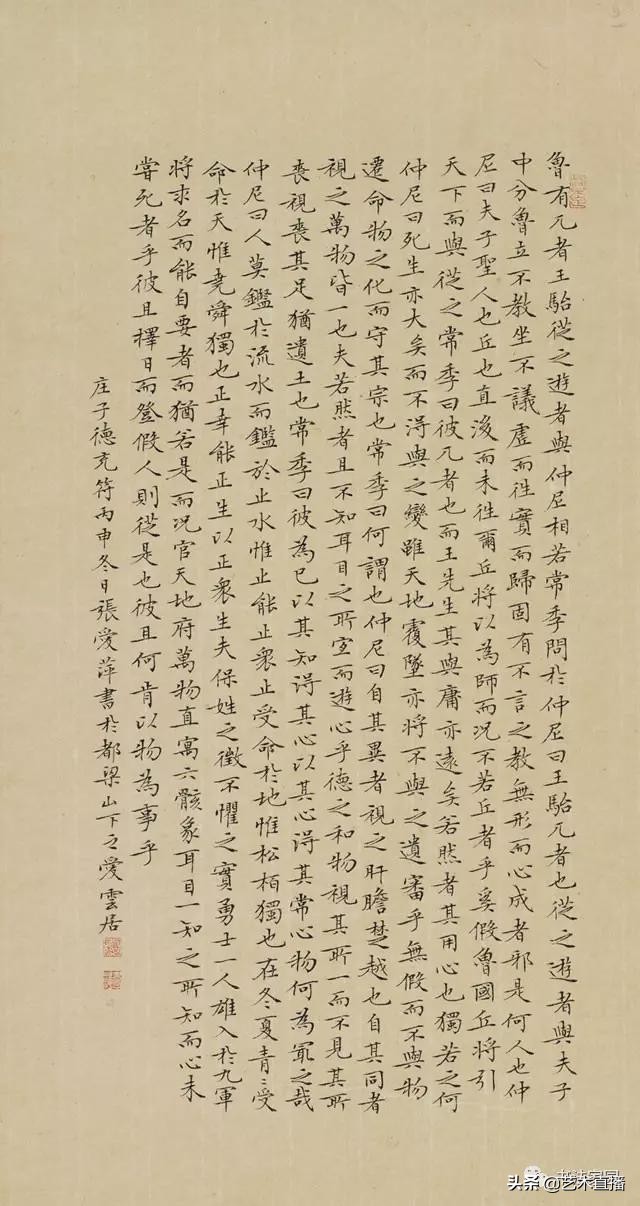 魯有兀者王駘從之遊者與仲尼相若常季問於仲尼曰王駘兀者也從之遊者與夫子
中分魯立不教坐不議虛而往實而歸固有不言之教無形而心成者邪是何人也仲
尼曰夫子聖人也丘也直後而未往爾丘將以為師而況不若丘者乎奚假魯國丘將引
天下而與從之常季曰彼兀者也而王先生其與庸亦遠矣若然者其用心也獨若之何
仲尼曰死生亦大矣而不得與之變雖天地覆墜亦將不與之遺審乎無假而不與物
遷命物之化而守其宗也常季曰何謂也仲尼曰自其異者視之肝膽楚越也自其同者
視之萬物皆一也夫若然者且不知耳目之所宜而遊心乎德之和物視其所一而不見其所
喪視喪其足猶遺土也常季曰彼為已以其知得其心以其心得其常心物何為最之哉
仲尼曰人莫鑑於流水而鑑於止水惟止能止眾止受命於地惟松栢獨也在冬夏青〻受
命於天惟堯舜獨也正幸能正生以正眾生夫保姓之徵不懼之實勇士一人雄入於九軍
將求名而能自要者而猶若是而況官天地府萬物直寓六骸象耳目一知之所知而心未
嘗死者乎彼且擇日而登假人則從是也彼且何肯以物為事乎
庄子德充符丙申冬日張愛萍書於都梁山下之愛雲居
头条@艺术直播